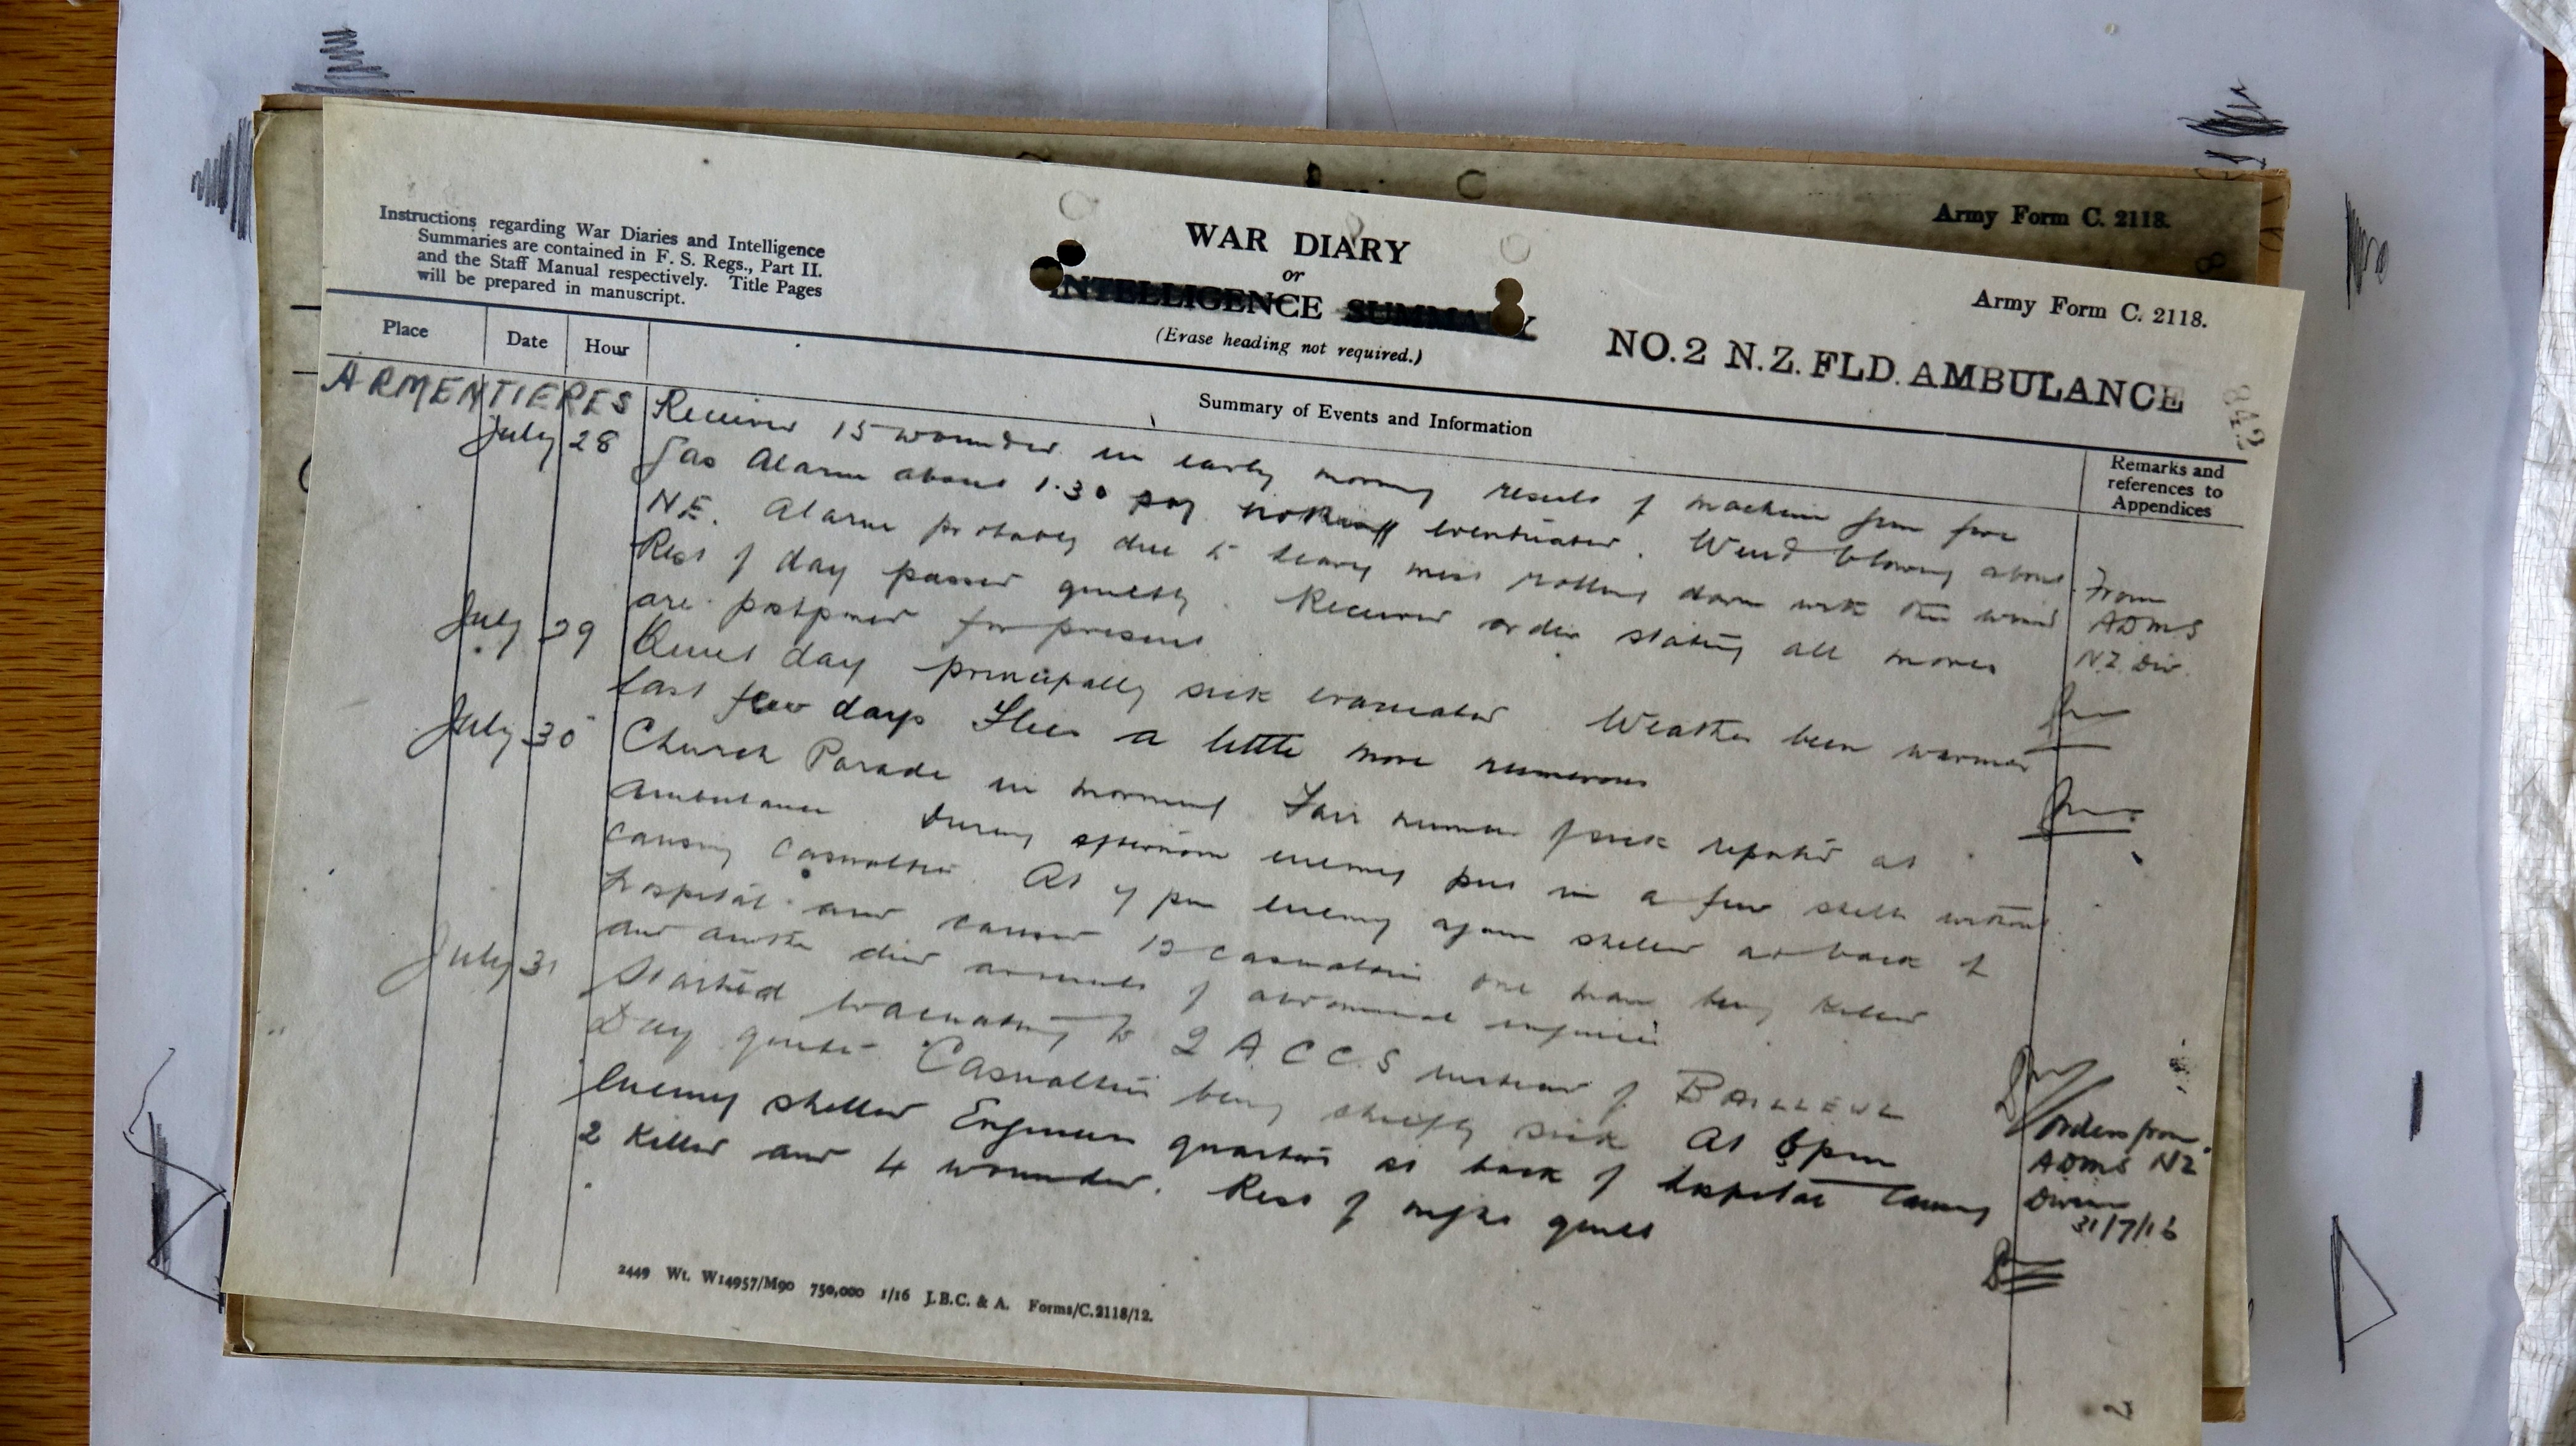 Army Form C. 2118.
Instructions regarding War Diaries and Intelligence
Summaries are contained in F. S. Regs., Part II.
and the Staff Manual respectively. Title Pages
will be prepared in manuscript.
WAR DIARY
or
INTELLIGENCE SUMMARY
(Erase heading not required.)
Army Form C. 2118.
NO. 2 N.Z. FLD. AMBULANCE
842
Place Date Hour
Summary of Events and Information
Remarks and
references to
Appendices
ARMENTIERES
July 28
Received 15 wounded in early morning result of machine gun fire
Gas Alarm about 1.30 nothing eventuated. Wind blowing about
NE. Alarm probably due to heavy mist rolling down with the wind
Rest of day passed quietly. Received order stating all moves
are postponed for present
From
ADMS
NZ Div.
July 29
Quiet day principally sick evacuated Weather been warmer
last few days Flies a little more numerous
July 30
Church Parade in morning Fair number of sick reported at
Ambulance During afternoon enemy put in a few shells without
causing casualties. At 7 pm enemy again shelled at back of
hospital and caused 12 casualties one man being killed
and another died as result of abdominal injuries
July 31
Started evacuating to 2 A C C S instead of BAILLEUL
Day quiet Casualties being chiefly sick At 6 pm
Enemy shelled Engineers quarters at back of hospital causing
2 killed and 4 wounded. Rest of night quiet
Orders from
ADMS NZ
Division
31/7/16
2449 Wt. W14957/M90 750,000 1/16 J.B.C. & A. Forms/C.2118/12.